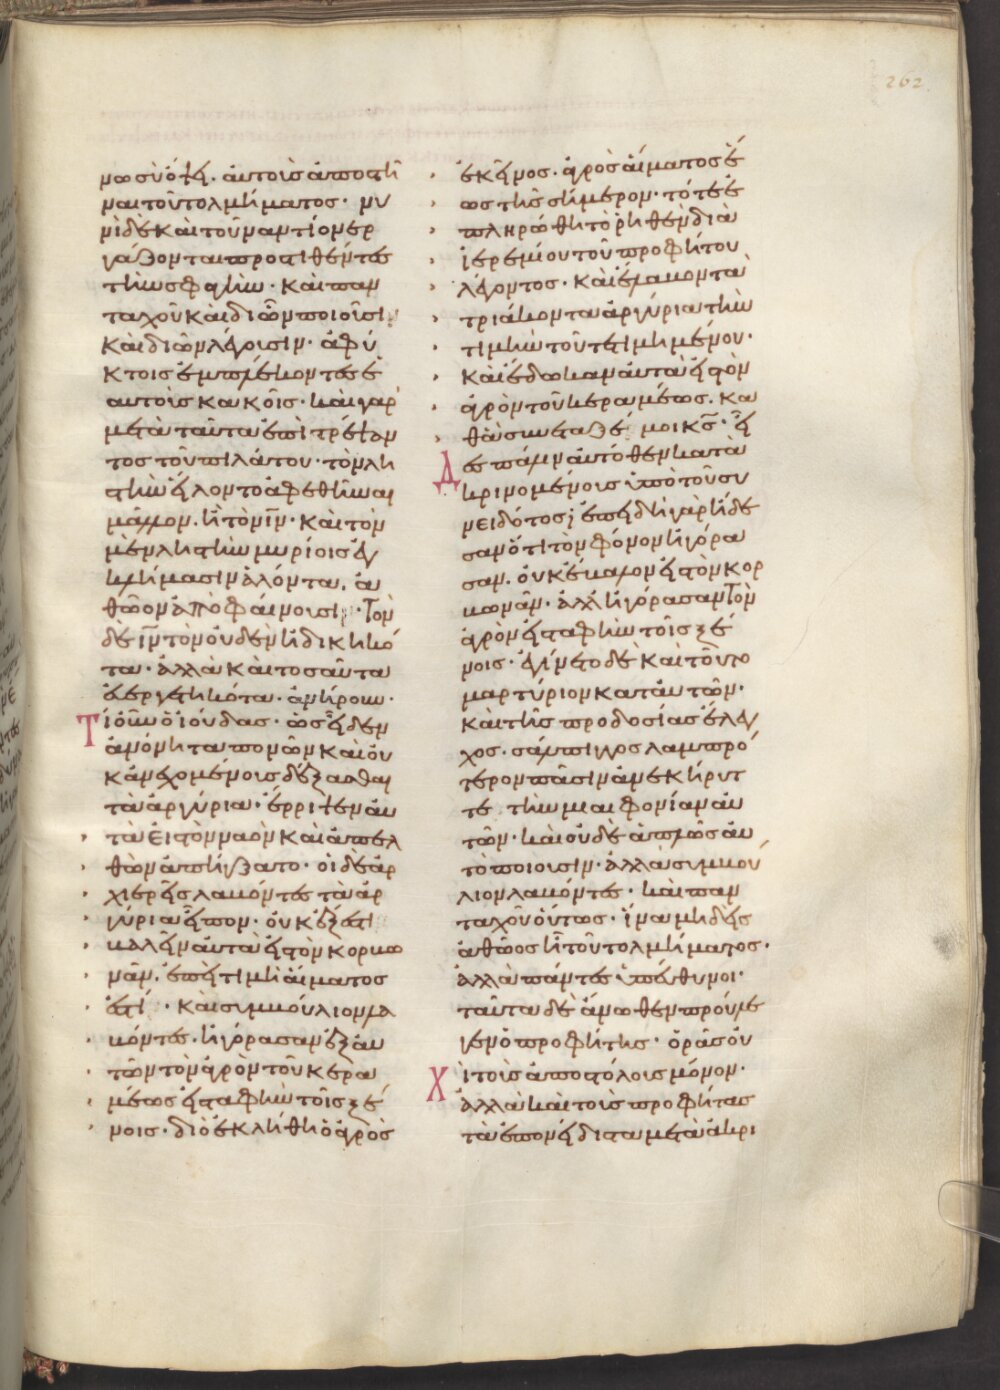 262
μωσὺ ὄψει. αὐτοῖς ἀποστῆ
ναι τοῦ τολμήματος· νυ
νὶ δὲ καὶ τοὐναντίον ἐρ
γάζονται προστιθέντες
τὴν σφαγὴν· καὶ παν
ταχοῦ καὶ δι ὧν ποιοῦσι
καὶ δι ὧν λέγουσιν· ἀφύ
κτοις ἐμπλέκοντες ἑ
αυτοῖς κακοῖς· καὶ γὰρ
μετὰ ταῦτα ἐπιτρέψαν
τος τοῦ πιλάτου· τὸν λη
στὴν εἵλοντο ἀφεθῆναι
μᾶλλον. ἢ τὸν ι̅ν̅· καὶ τὸν
μὲν ληστὴν μυρίοις ἐγ
κλήμασιν ἁλόντα. ἀ
θῶον ἀπὸφαίνουσι· Τὸν
δὲ ι̅ν̅ τὸν οὐδὲν ἠδικηκό
τα· ἀλλὰ καὶ τοσαῦτα
εὐεργετηκότα. ἀνήρουν·
Τί οὖν ὁ ἰούδας· ὡς εἶδεν
ἀνόνητα πονῶν καὶ οὐ
κ ἀνεχομένοις δέξασθαι
τὰ ἀργύρια· ἔρριψεν αὐ
τὰ εἰς τὸν ναὸν καὶ ἀπελ
θὼν ἀπήγξατο· οἱ δὲ ἀρ
χιερεῖς λαβόντες τὰ ἀρ
γύρια εἶπον· οὐκ ἔξεστι
βαλεῖν αὐτὰ εἰς τὸν κορβω
νᾶν. ἐπεὶ τιμὴ αἵματος
ἐστί· καὶ συμβούλιον λα
βόντες. ἠγόρασαν ἐξ αὐ
τῶν τὸν ἀγρὸν τοῦ κερα
μέως εἰς ταφὴν τοῖς ξέ
νοις· διὸ ἐκλήθη ὁ ἀγρὸς
ἐκεῖνος. ἀγρὸς αἵματος ἕ
ως τῆς σήμερον· τότε ἐ
πληρώθη τὸ ῥηθὲν διὰ
ἱερεμίου τοῦ προφήτου
λέγοντος· καὶ ἔλαβον τὰ
τριάκοντα ἀργύρια τὴν
τιμὴν τοῦ τετιμημένου·
καὶ ἔδωκαν αὐτὰ εἰς τὸν
ἀγρὸν τοῦ κεραμέως. κα
θὰ συνέταξέ μοι κ̅ς̅· εἶ
Δες πάλιν αὐτόθεν κατα
κρινομένοις ὑπὸ τοῦ συ
νειδότος; ἐπειδὴ γὰρ ἤδε
σαν ὅτι τὸν φόνον ἠγόρα
σαν. οὐκ ἔβαλον εἰς τὸν κορ
βωνᾶν· ἀλλ ἠγόρασαν Τὸν
ἀγρὸν εἰς ταφὴν τοῖς ξέ
νοις· ἐγίνετο δὲ καὶ τοῦτο
μαρτύριον κατ αὐτῶν·
καὶ τῆς προδοσίας ἔλεγ
χος. σάλπιγγος λαμπρό
τερον πᾶσιν ἀνεκήρυτ
τε τὴν μιαιφονίαν αὐ
τῶν· καὶ οὐδὲ ἁπλῶς αὐ
τὸ ποιοῦσιν· ἀλλὰ συμβού
λιον λαβόντες· καὶ παν
ταχοῦ οὕτως· ἵνα μηδεὶς
ἀθῶος ἦ τοῦ τολμήματος·
ἀλλὰ πάντες ὑπεύθυνοι·
ταῦτα δὲ ἄνωθεν προὔλε
γεν ὁ προφήτης· ὁρᾶς οὐ
Χὶ τοῖς ἀποστόλοις μόνον·
ἀλλὰ καὶ τοῖς προφήταις
τὰ ἐπονείδιστα μετὰ ἀκρι